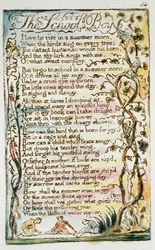 The School Boy
I love to rise in a summer morn,
When the birds sing on every tree;
The distant huntsman winds his horn,
And the sky-lark sings with me.
O! what sweet company.
But to go to school in a summer morn
O! it drives all joy away;
Under a cruel eye outworn,
The little ones spend the day,
In sighing and dismay.
Ah! then at times I drooping sit,
And spend many an anxious hour.
Nor in my book can I take delight,
Nor sit in learnings bower,
Worn thro' with the dreary shower
How can the bird that is born for joy,
Sit in a cage and sing.
How can a child when fears annoy,
But droop his tender wing,
And forget his youthful spring.
O! father & mother, if buds are nip'd,
And blossoms blown away,
And if the tender plants are strip'd
Of their joy in the springing day,
By sorrow and cares dismay,
How shall the summer arise in joy
Or the summer fruits appear
Or how shall we gather what griefs destroy
Or bless the mellowing year,
When the blasts of winter appear.